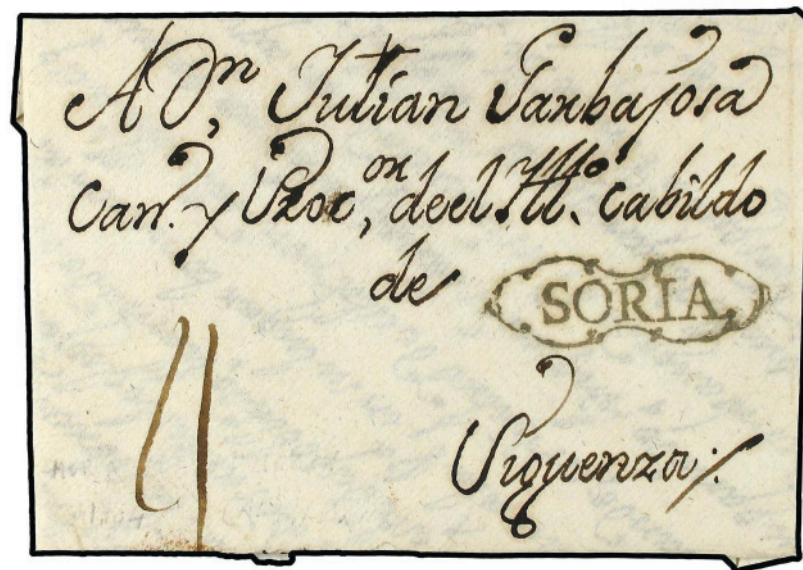 A Dn, Julian Garbajosa
Can. y Procor, deel Illo. cabildo
de SORIA
Siguenza:/
4